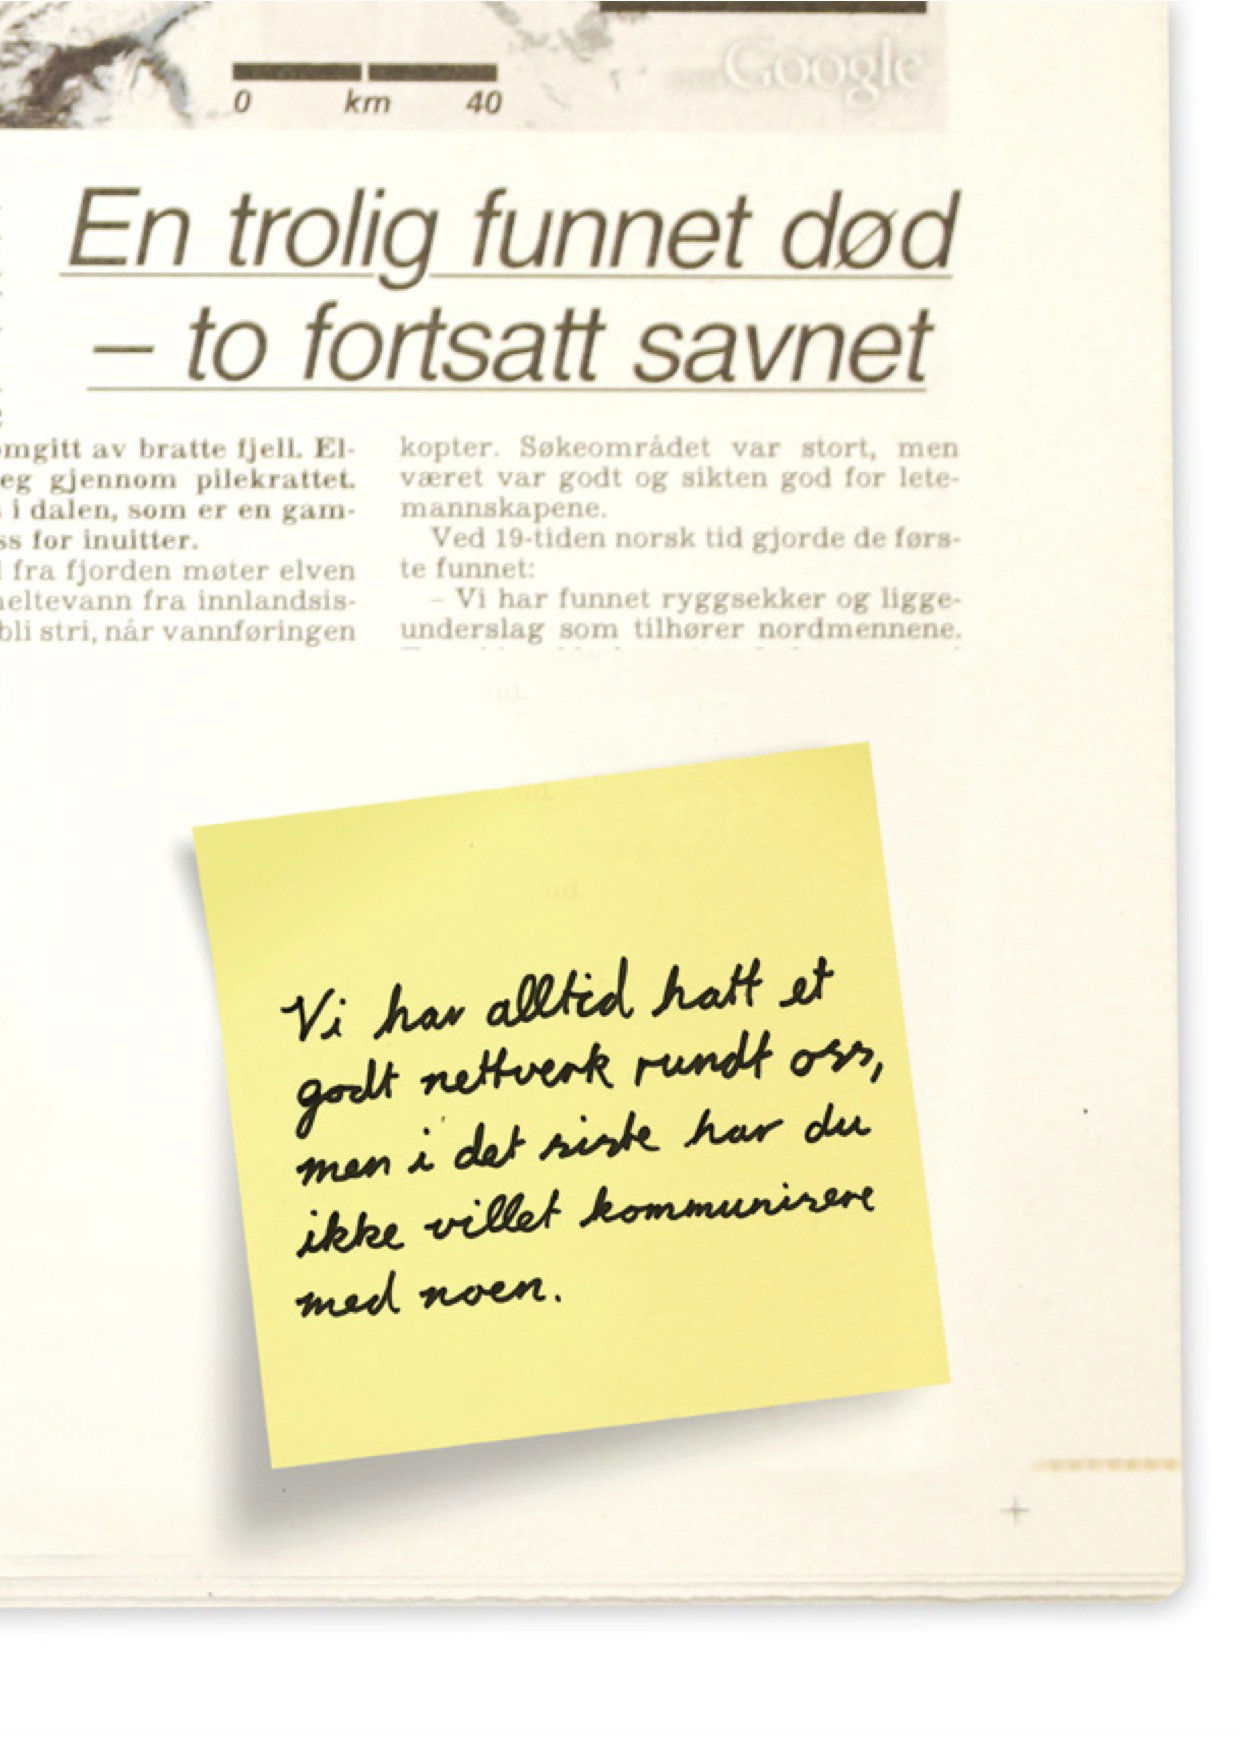 Google
0 km 40
En trolig funnet død
– to fortsatt savnet
omgitt av bratte fjell. El-
eg gjennom pilekrattet.
i dalen, som er en gam-
ss for inuitter.
fra fjorden møter elven
meltevann fra innlandsis-
bli stri, når vannføringen
kopter. Søkeområdet var stort, men
været var godt og sikten god for lete-
mannskapene.
Ved 19-tiden norsk tid gjorde de førs-
te funnet:
– Vi har funnet ryggsekker og ligge-
underslag som tilhører nordmennene.
Vi har alltid hatt et
godt nettverk rundt oss,
men i det siste har du
ikke villet kommunisere
med noen.